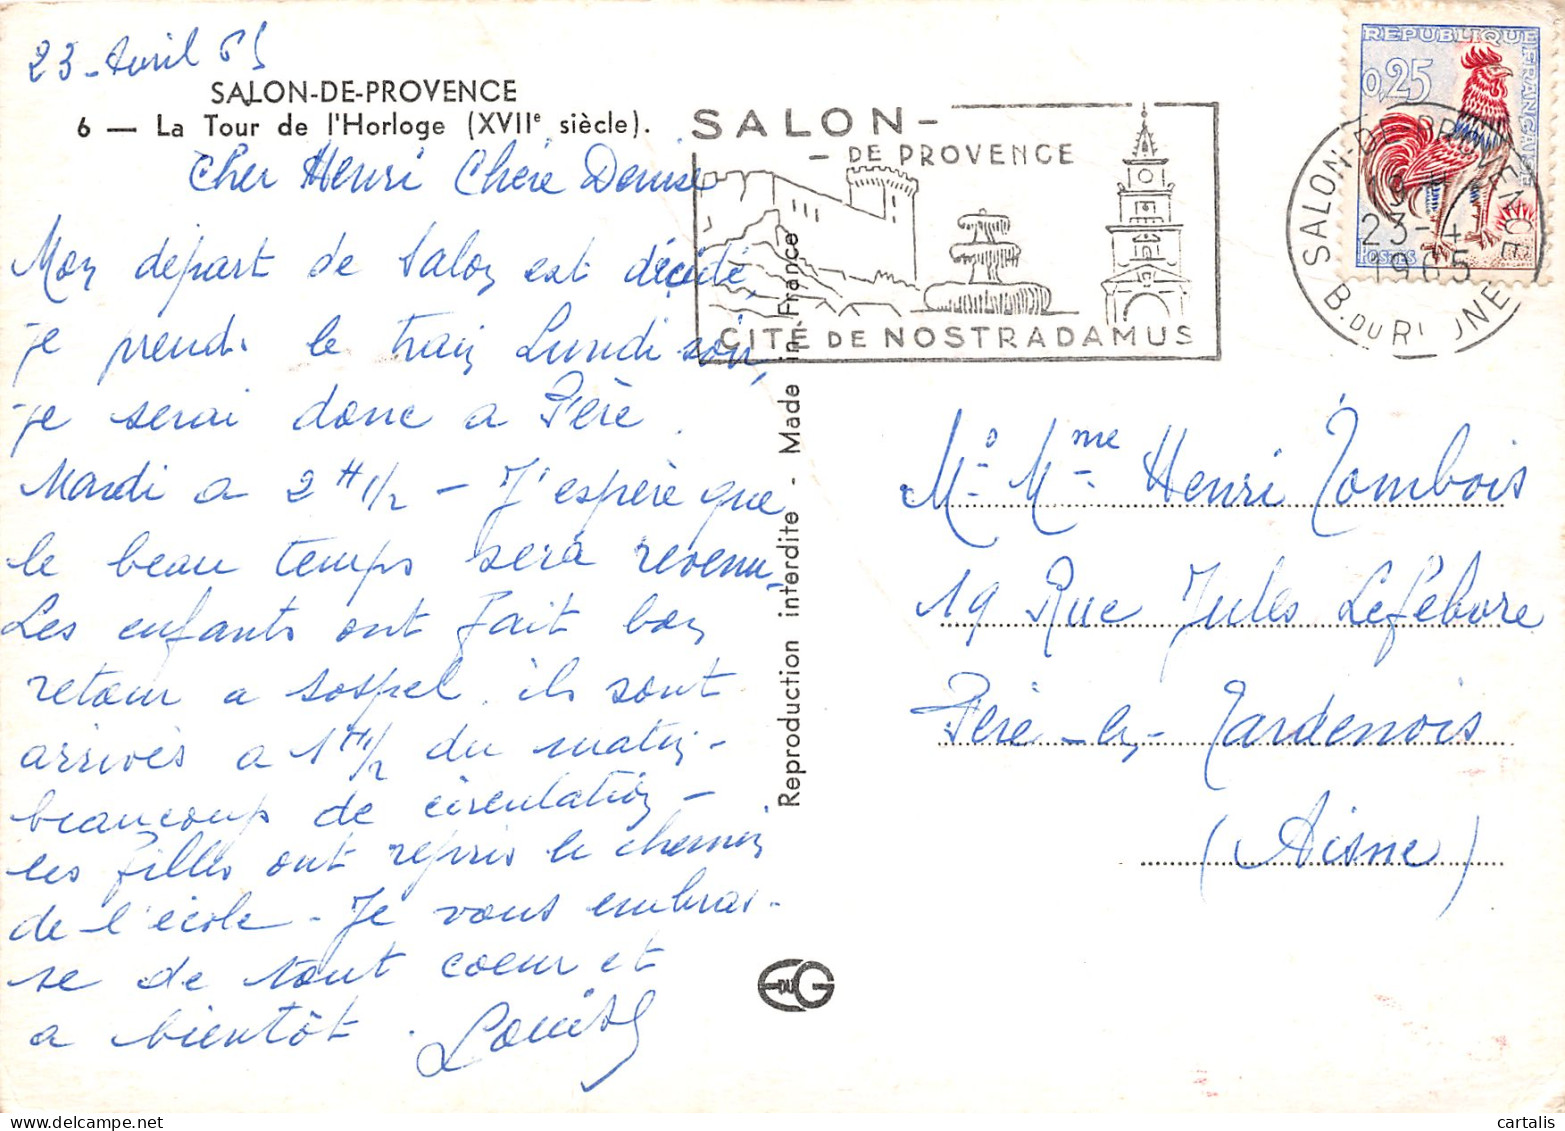 23-Avril 65
SALON-DE-PROVENCE
6 — La Tour de l'Horloge (XVIIe siècle).
Cher Henri Chère Denise
Mon départ de Salon est décidé,
je prends le train Lundi soir,
je serai donc a Fère.
Mardi a 2 H 1/2 - J'espère que
le beau temps sera revenu.
Les enfants ont fait bon
retour a Sospel. ils sont
arrivés a 1 H 1/2 du matin -
beaucoup de circulation -
les filles ont repris le chemin
de l'école - Je vous embras-
se de tout coeur et
a bientôt.
Reproduction interdite - Made in France
SALON-
-DE PROVENCE
CITÉ DE NOSTRADAMUS
REPUBLIQUE
FRANÇAISE
0,25
POSTES
SALON-DE-PROVENCE
23-4
1965
B. DU RHONE
Mr. Mme Henri Tombois
19 Rue Jules Lefebvre
Fère-en-Tardenois
(Aisne)
E DU G
cartalis